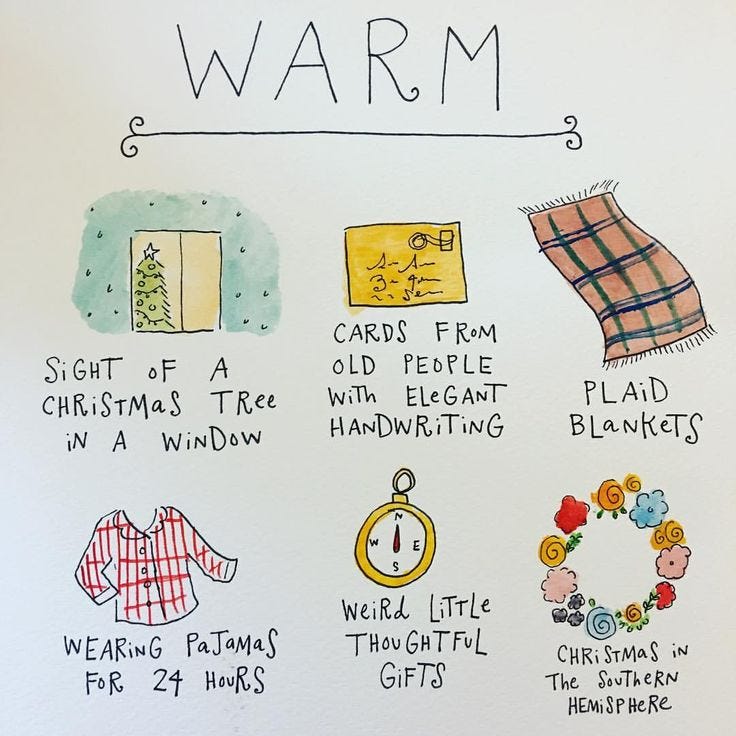 WARM
SiGHT oF A
CHRiStMAS TREe
iN A WiNDOW
CARDS FROM
OLD PEOPLE
WiTh ELEGANT
HANDWRiTiNG
PLAiD
BLANKEtS
N
W E
S
WEARiNG PaJAMAS
FOR 24 HoURS
WEiRD LiTTLE
THOUGHTFUL
GiFTS
CHRiSTMAS iN
The SoUTHERN
HEMiSPHeRE